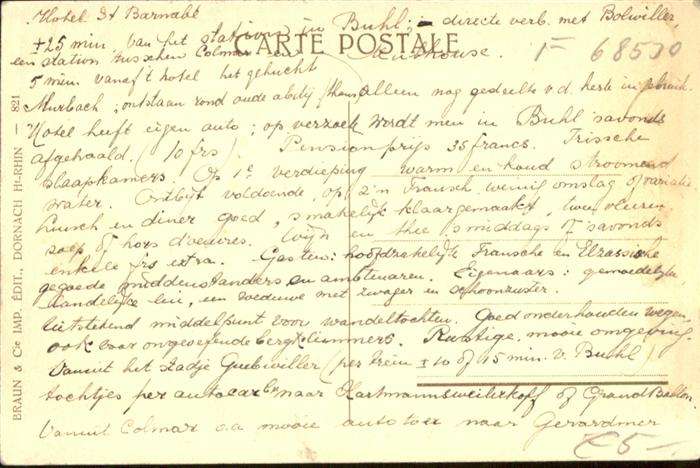 Hotel St Barnabé
± 25 min. van het station in Buhl; directe verb. met Bolwiller,
een station tusschen Colmar en Mulhouse.
CARTE POSTALE
1- 68530
5 min. vanaf 't hotel het gehucht
Murbach; ontstaan rond oude abdij (thans alleen nog gedeelte v.d. kerk in gebruik.
Hotel heeft eigen auto; op verzoek wordt men in Buhl 'savonds
afgehaald. (10 frs). Pensionprijs 35 francs. Frissche
slaapkamers. Op 1e verdieping warm en koud stroomend
water. Ontbijt voldoende, op z'n Fransch, weinig omslag of variatie
Lunch en diner goed, smakelijk klaargemaakt, twee vleezen
soep of hors d'oeuvres. Wijn en thee 'smiddags of 'savonds
enkele frs extra. Gasten: hoofdzakelijk Fransche en Elzassische
gegoede middenstanders en ambtenaren. Eigenaars: gemoedelijke
landelijke lui, een weduwe met zwager en schoonzuster.
Uitstekend middelpunt voor wandeltochten. Goed onderhouden wegen
ook voor ongeoefende bergbeklimmers. Rustige, mooie omgeving.
Vanuit het stadje Guebwiller (per trein ± 10 of 15 min. v. Buhl)
tochtjes per autocar naar Hartmannsweilerkopf of Grand Ballon.
Vanuit Colmar o.a. mooie autotoer naar Gerardmer
€5-
BRAUN & Cie IMP. ÉDIT., DORNACH Ht-RHIN — 821